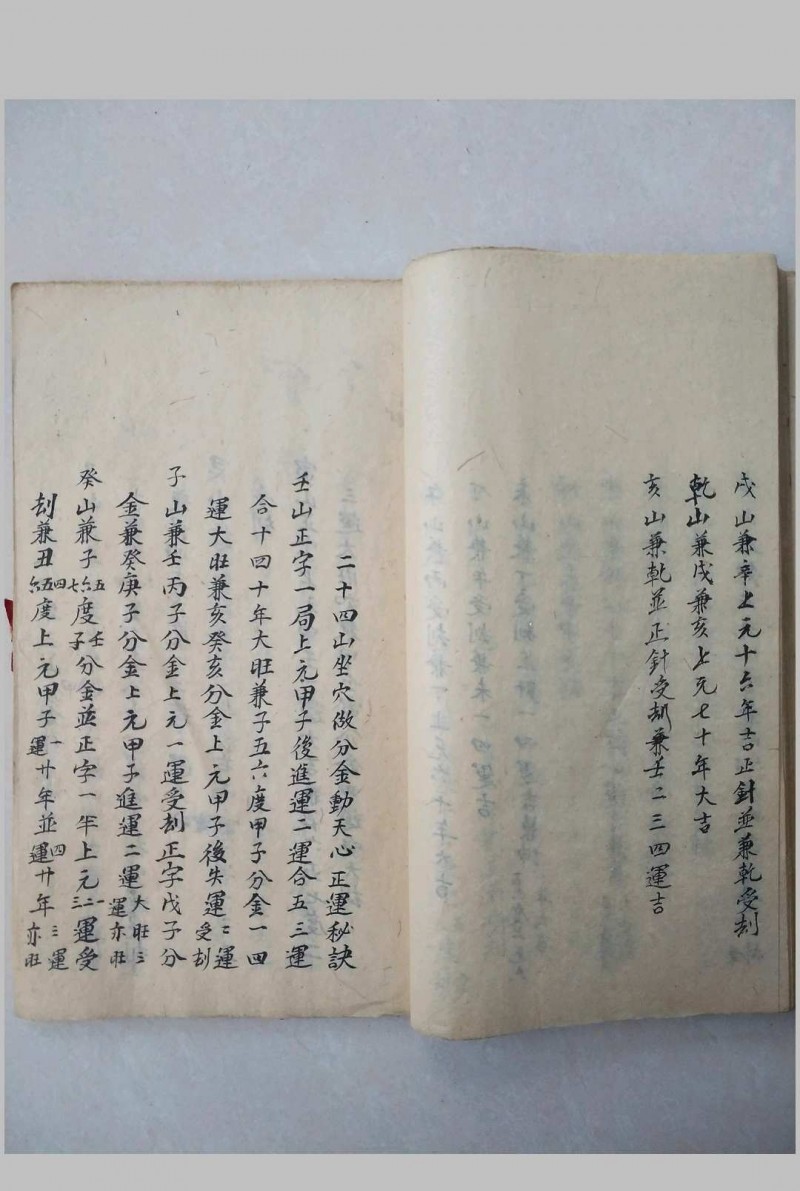 戌山兼辛上元十六年吉正針並兼乾受刼
乾山兼戌兼亥上元七十年大吉
亥山兼乾並正針受刼兼壬二三四運吉
二十四山坐穴做分金動天心正運秘訣
壬山正字一局上元甲子後進運二運合五三運
合十四十年大旺兼子五六度甲子分金一四
運大旺兼亥癸亥分金上元甲子後失運二運受刼
子山兼壬丙子分金上元一運受刼正字戊子分
金兼癸庚子分金上元甲子進運二運大旺三運亦旺
癸山兼子五六七度壬子分金並正字一半上元一二三運受
刼兼丑四五六度上元甲子一運廿年並四運廿年三運亦旺